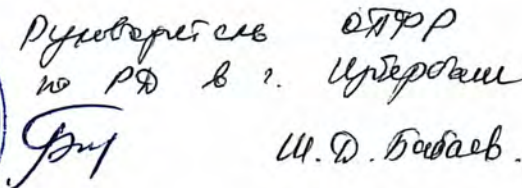 Руководитель ОПФР
по РД в г. Избербаш
Ш.Д. Бабаев.